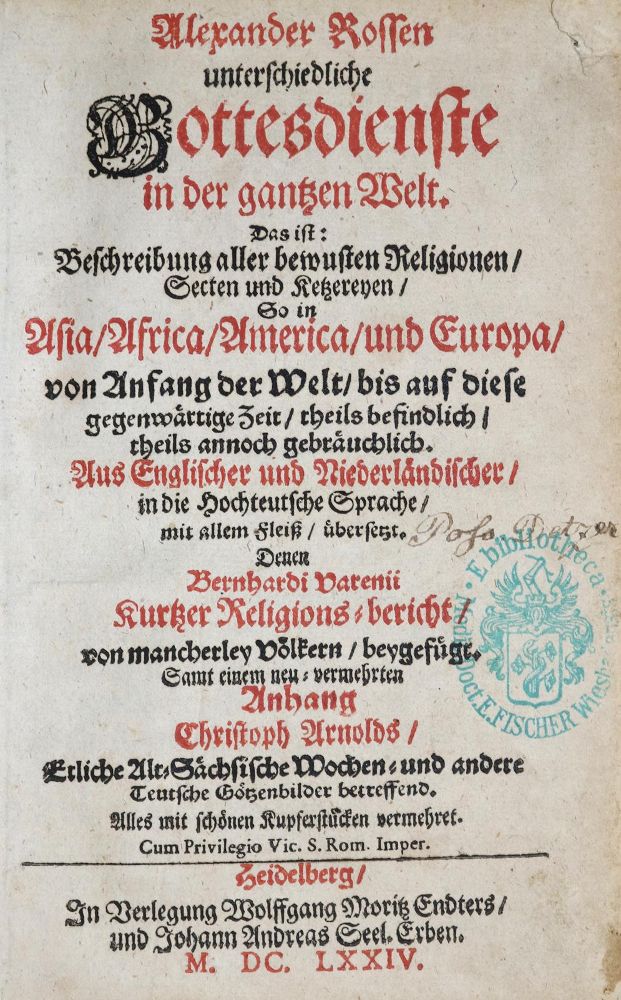 Alexander Rossen
unterschiedliche
Gottesdienste
in der gantzen Welt.
Das ist:
Beschreibung aller bewusten Religionen/
Secten und Ketzereyen/
So in
Asia/Africa/America/und Europa/
von Anfang der Welt/bis auf diese
gegenwärtige Zeit/theils befindlich/
theils annoch gebräuchlich.
Aus Englischer und Niederländischer/
in die Hochteutsche Sprache/
mit allem Fleiß/übersetzt.
Denen
Bernhardi Varenii
Kurtzer Religions-bericht/
von mancherley Völkern/beygefügt.
Samt einem neu-vermehrten
Anhang
Christoph Arnolds/
Etliche Alt-Sächsische Wochen-und andere
Teutsche Götzenbilder betreffend.
Alles mit schönen Kupferstücken vermehret.
Cum Privilegio Vic. S. Rom. Imper.
Heidelberg/
In Verlegung Wolffgang Moritz Endters/
und Johann Andreas Seel. Erben.
M. DC. LXXIV.
E bibliotheca
Doct. E. FISCHER